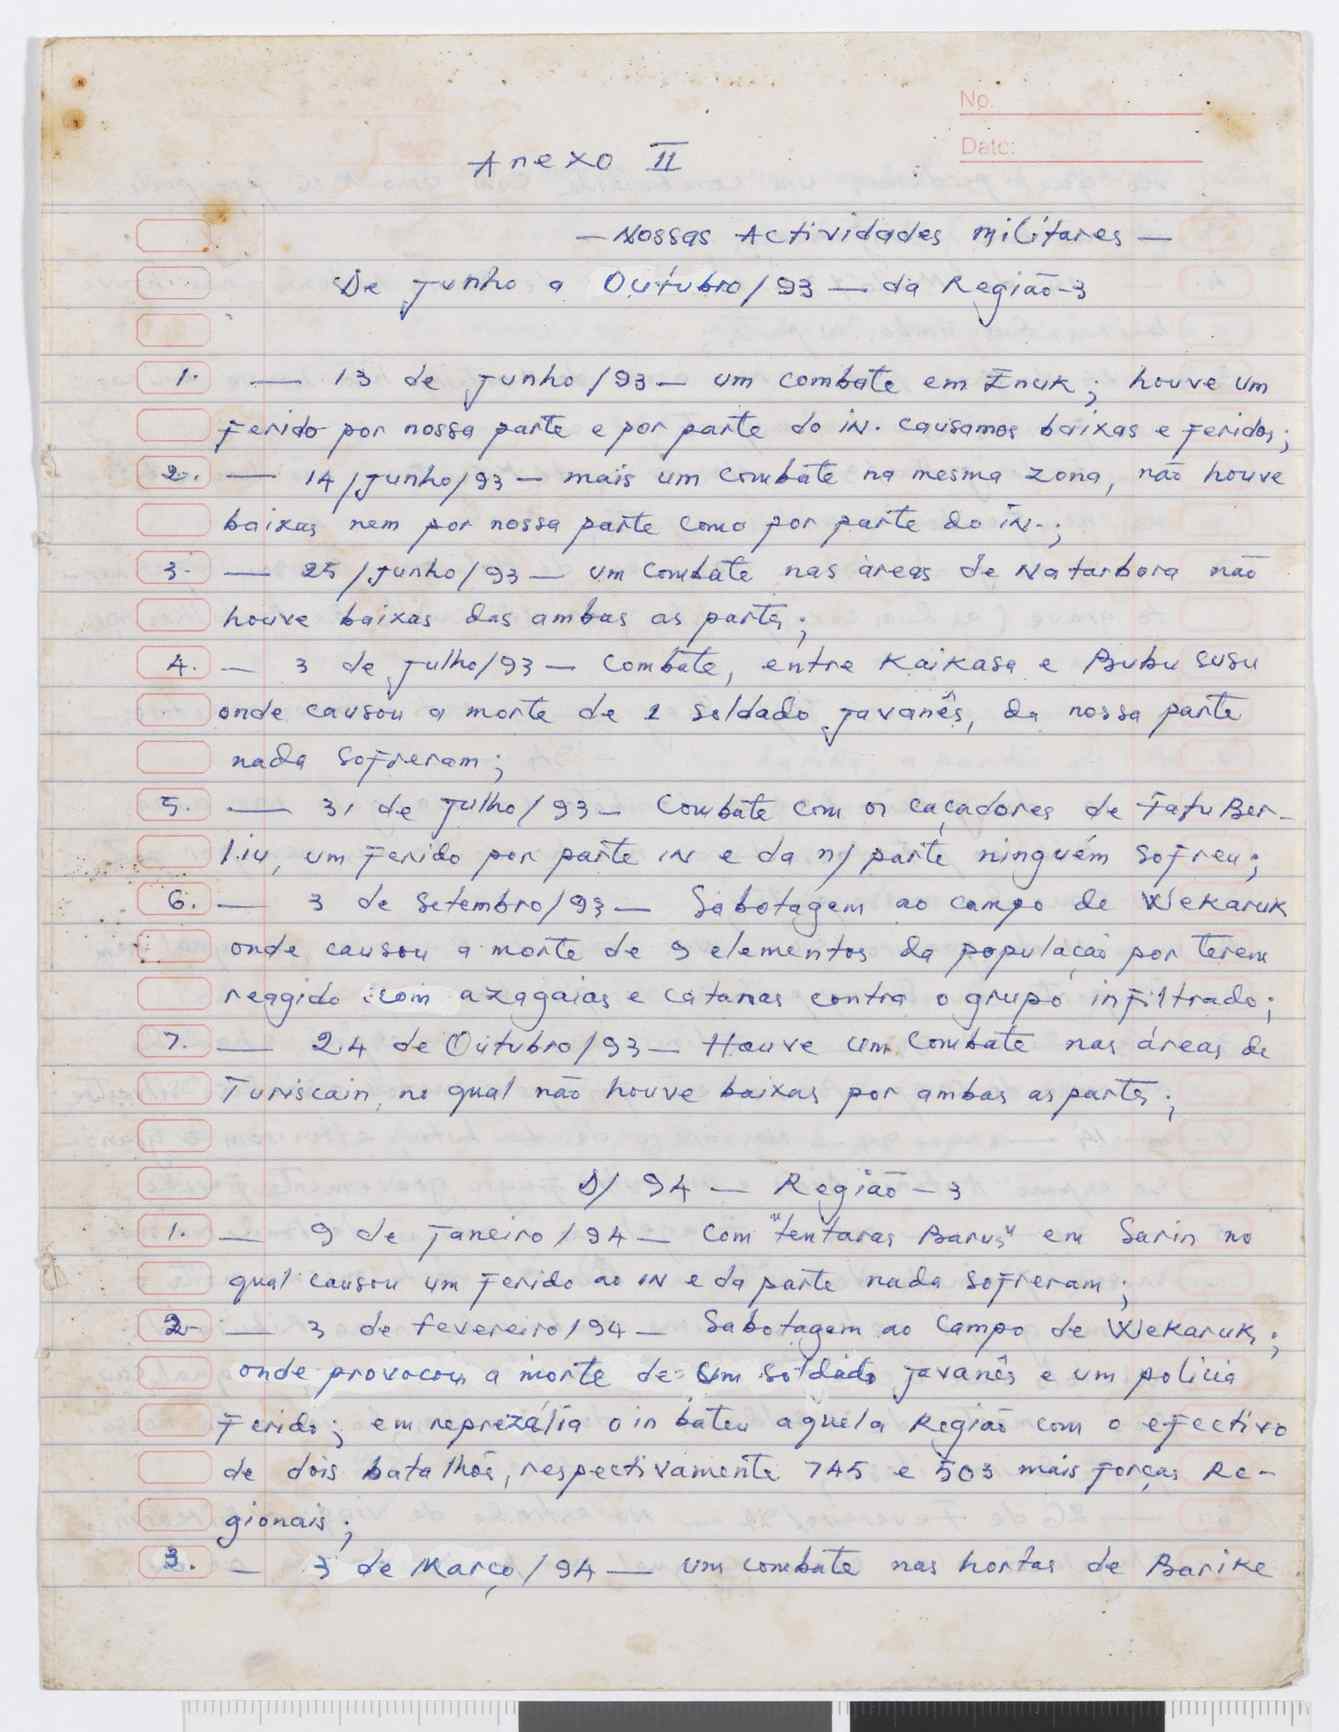 No.
Date:
Anexo II
— Nossas Actividades Militares —
De Junho a Outubro/93 — da Região-3
1. — 13 de Junho/93 — um combate em Inuk; houve um
ferido por nossa parte e por parte do iN. causamos baixas e feridos;
2. — 14/Junho/93 — mais um combate na mesma zona, não houve
baixas nem por nossa parte como por parte do iN.;
3. — 25/Junho/93 — um combate nas áreas de Natarbora não
houve baixas das ambas as partes;
4. — 3 de Julho/93 — Combate, entre Kaikasa e Bubu susu
onde causou a morte de 1 soldado Javanês, da nossa parte
nada sofreram;
5. — 31 de Julho/93 — Combate com os caçadores de Fatu Ber-
liu, um ferido por parte iN e da n/ parte ninguém sofreu;
6. — 3 de Setembro/93 — Sabotagem ao campo de Wekaruk
onde causou a morte de 9 elementos da população por terem
reagido com azagaias e catanas contra o grupo infiltrado;
7. — 24 de Outubro/93 — Houve um combate nas áreas de
Turiscain, no qual não houve baixas por ambas as partes;
D/ 94 — Região-3
1. — 9 de Janeiro/94 — Com "tentaras Barus" em Sarin no
qual causou um ferido ao iN e da parte nada sofreram;
2- — 3 de fevereiro/94 — Sabotagem ao Campo de Wekaruk;
onde provocou a morte de um soldado Javanês e um policia
ferido; em reprezália o in bateu aquela Região com o efectivo
de dois batalhões, respectivamente 745 e 503 mais forças Re-
gionais;
3. — 3 de Março/94 — um combate nas hortas de Barike